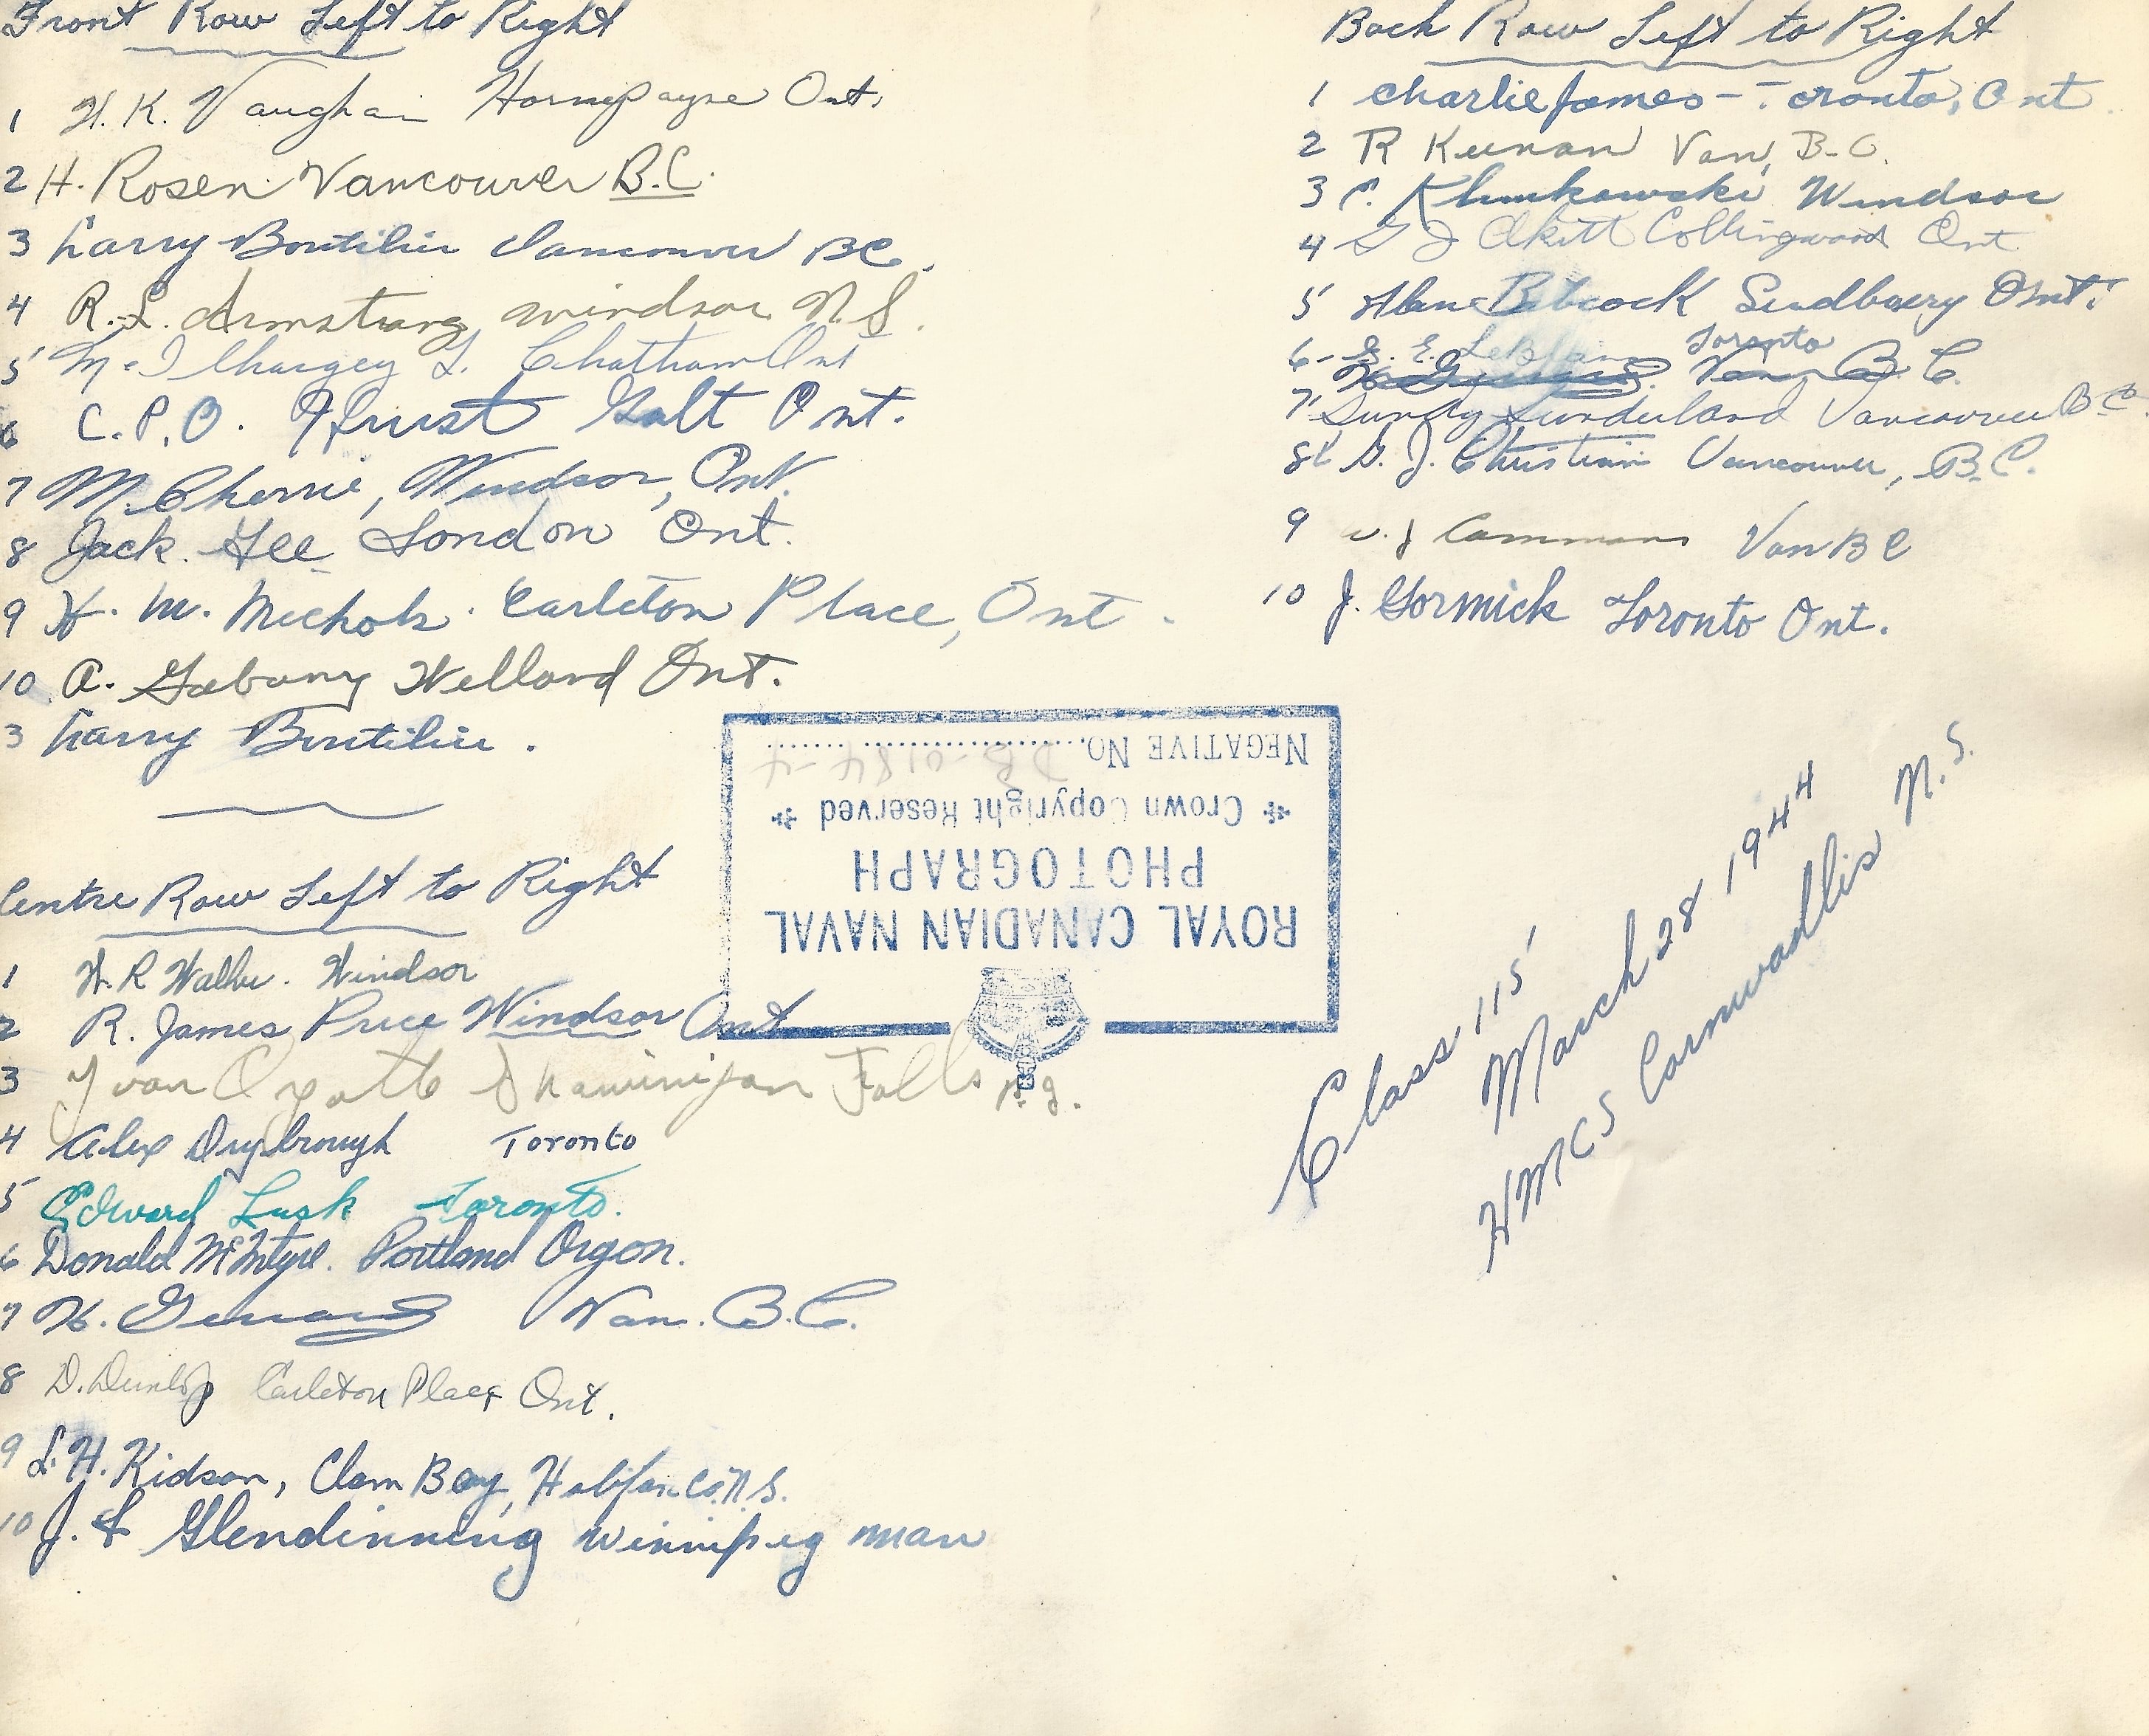 Front Row Left to Right
1 H. K. Vaughan Hornepayne Ont.
2 H. Rosen Vancouver B.C.
3 Larry Boutilier Vancouver BC.
4 R. L. Armstrong, Windsor N.S.
5 L. Chatham Ont
6 C.P.O. Hurst Galt Ont.
7 M. Cherrie, Windsor, Ont.
8 Jack Gee London Ont.
9 H. M. Nichols. Carleton Place, Ont.
10 A. Welland Ont.
3 Larry Boutilier.
Centre Row Left to Right
1 W. R Walker. Windsor
2 R. James Price Windsor Ont
3 Yvan Ayotte Shawinigan Falls P.Q.
4 Alex Drybrough Toronto
5 Edward Lusk Toronto.
6 Donald McIntyre. Portland Orgon.
7 H. Van. B.C.
8 D. Dunlop Carleton Place Ont.
9 L. H. Kidson, Clam Bay, Halifax Co. N.S.
10 J. Glendinning Winnipeg Man
Back Row Left to Right
1 Charlie James - Toronto, Ont
2 R Keenan Van, B.C.
3 Windsor
4 G J Collingwood Ont
5 Babcock Sudbury Ont.
6- G. E. LeBlanc Toronto
Van B.C.
7 Sunny Sunderland Vancouver B.C.
8 G. J. Christian Vancouver, B.C.
9 Van B C
10 J. Gormick Toronto Ont.
ROYAL CANADIAN NAVAL
PHOTOGRAPH
Crown Copyright Reserved
NEGATIVE No. DB-0184-4
Class 115
March 28 1944
HMCS Cornwallis N.S.